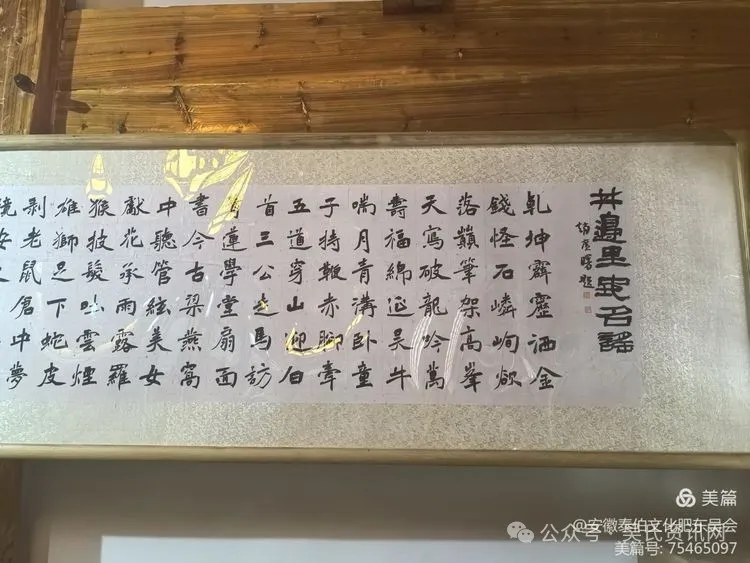 井邊里地名謠
題
乾坤霹靂洒金
錢怪石嶙峋欲
落巔筆架高峯
天寫破龍吟萬
壽福綿延吴牛
喘月青溝卧童
子持鞭赤脚牽
五道穿山迎白
首三公走馬訪
蓮學堂扇面
書今古梁燕窩
中聽管絃美女
獻花承雨露羅
猴披髮吐雲煙
雄獅足下蛇皮
剥老鼠倉中夢
美篇
@安徽泰伯文化肥东吴会
公众号·吴氏资讯网
美篇号: 75465097